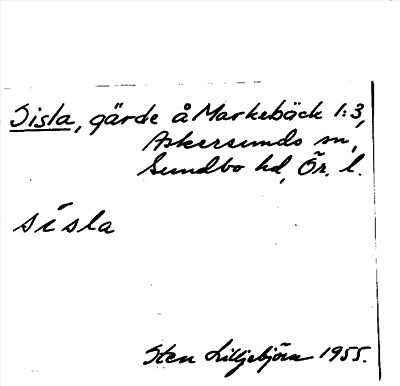 Sisla, gärde å Markebäck 1:3,
Askersunds sn,
Sundbo hd, Ör. l.
sísla
Sten Lilljebjörn 1955.